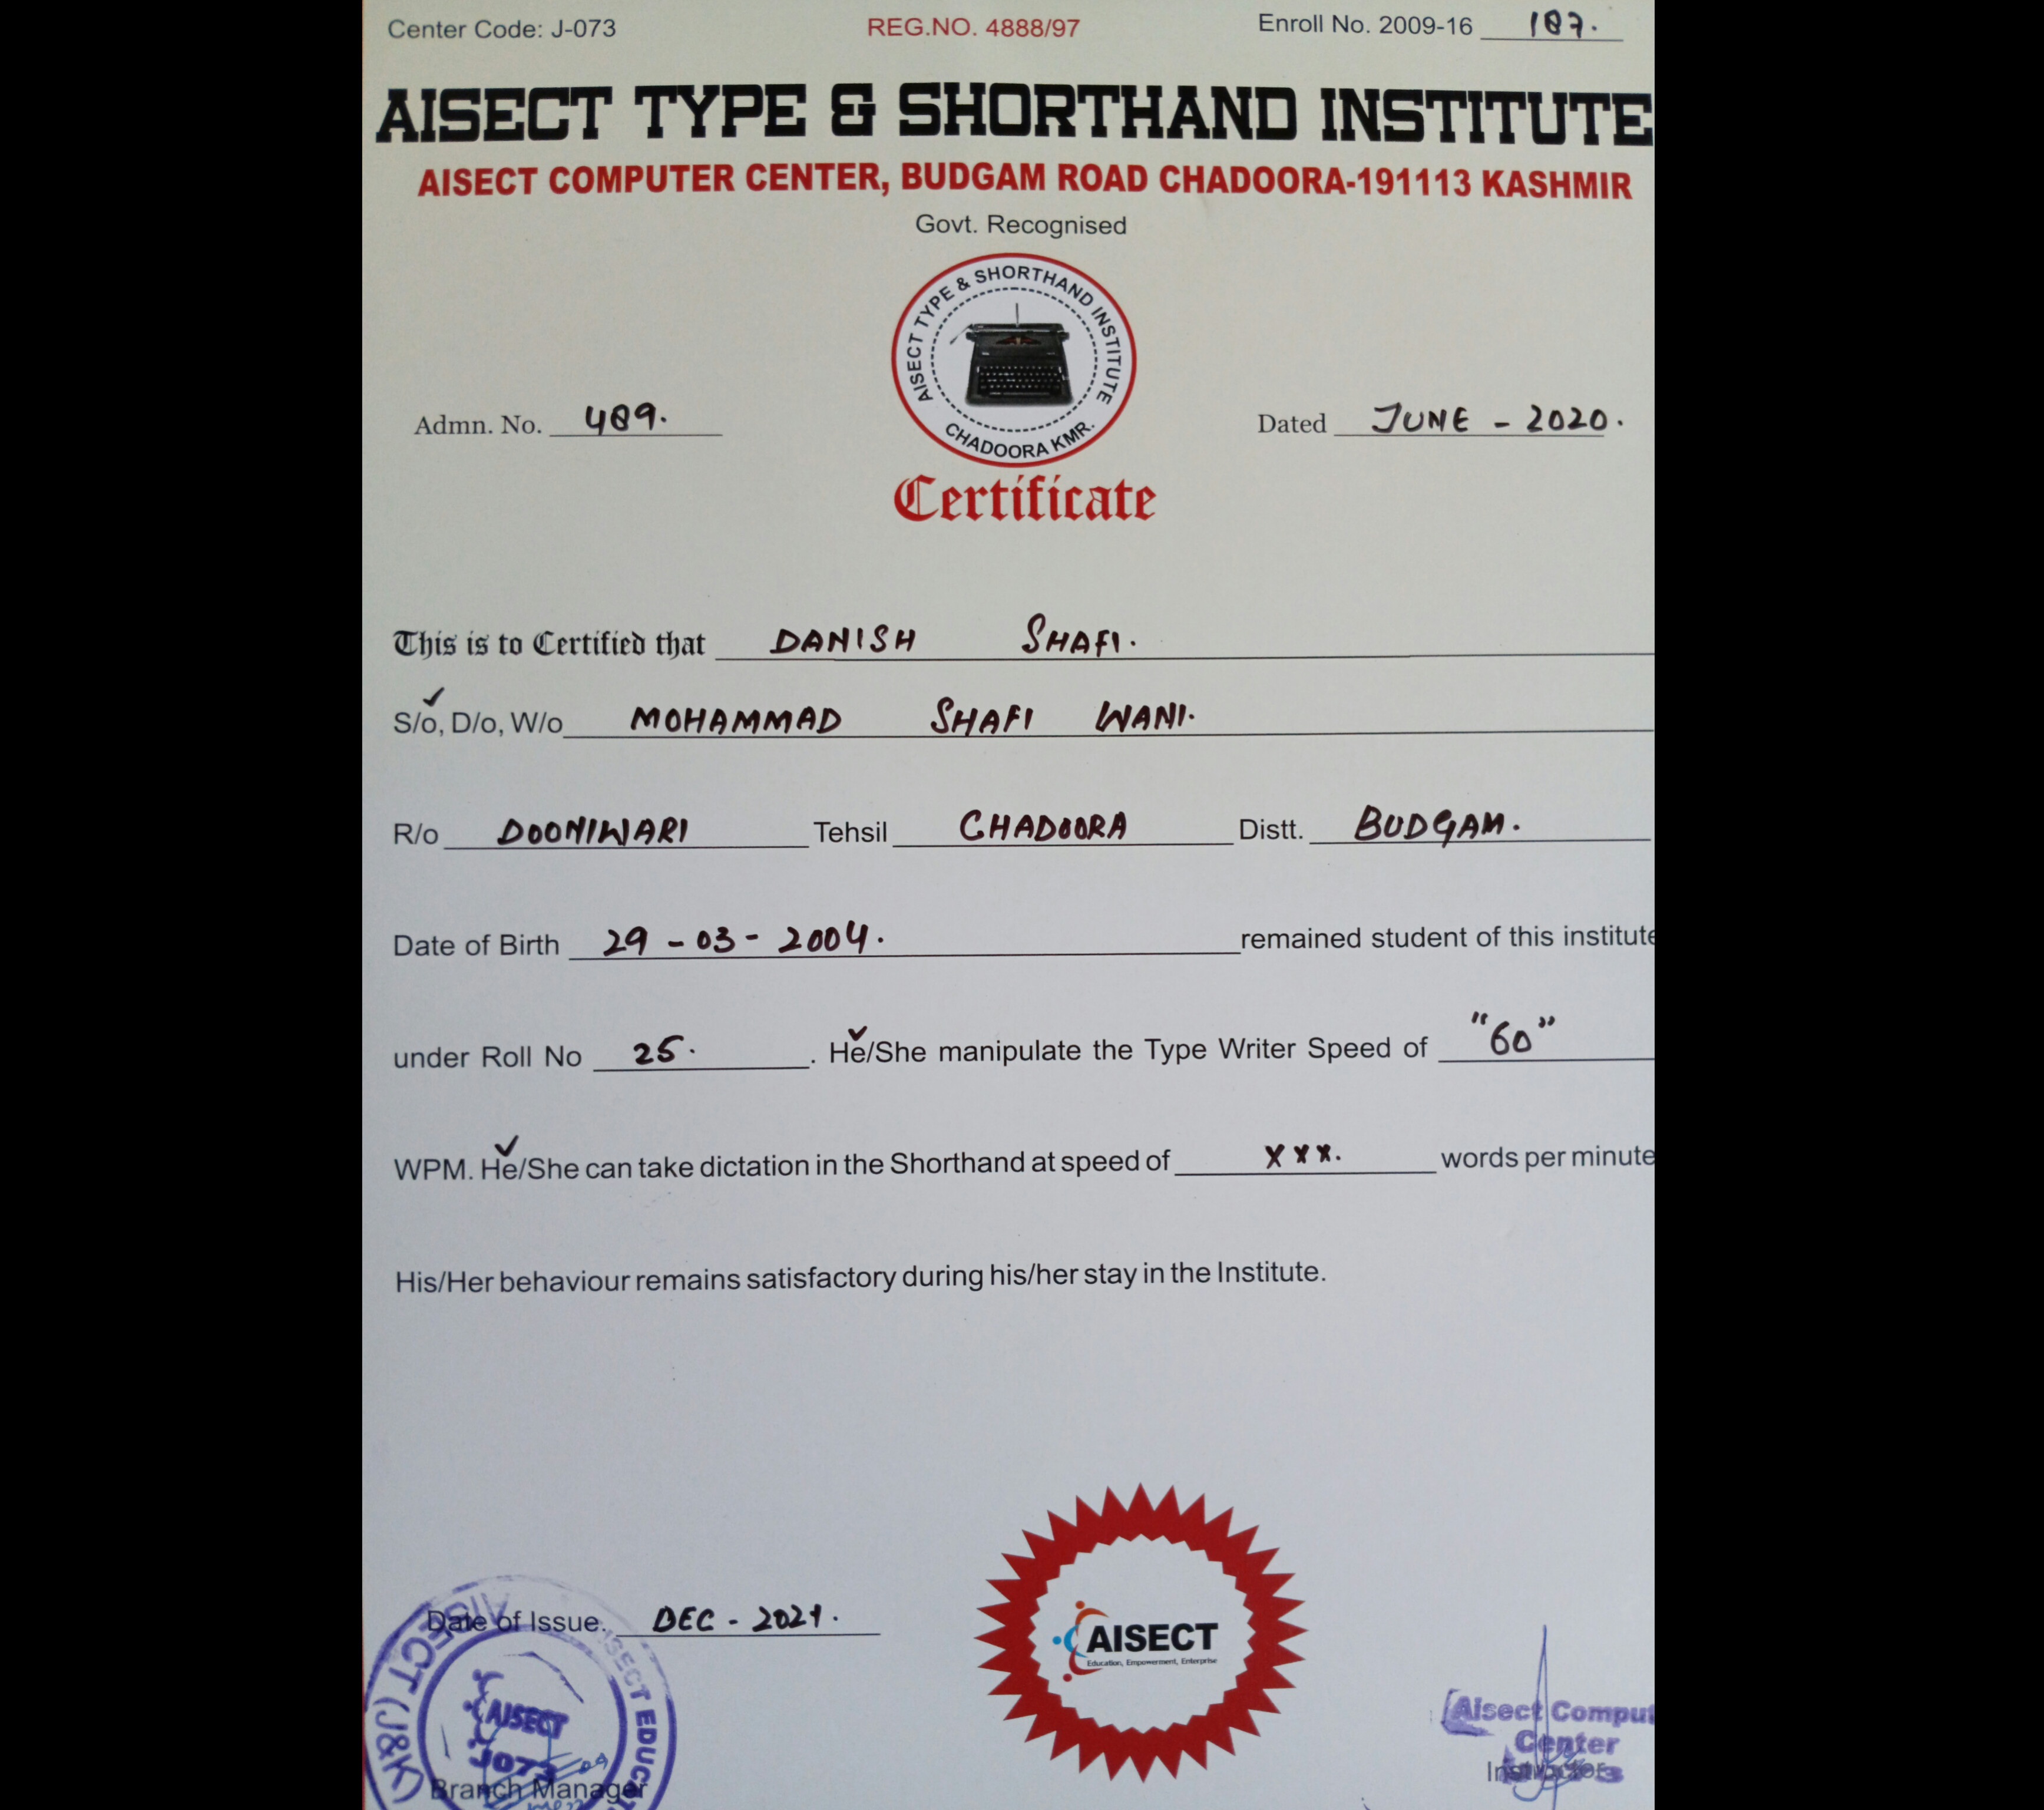 Center Code: J-073 REG.NO. 4888/97 Enroll No. 2009-16 187.
AISECT TYPE & SHORTHAND INSTITUTE
AISECT COMPUTER CENTER, BUDGAM ROAD CHADOORA-191113 KASHMIR
Govt. Recognised
AISECT TYPE & SHORTHAND INSTITUTE
CHADOORA KMR.
Admn. No. 489. Dated JUNE - 2020.
Certificate
This is to Certified that DANISH SHAFI.
S/o, D/o, W/o MOHAMMAD SHAFI WANI.
R/o DOONIWARI Tehsil CHADOORA Distt. BUDGAM.
Date of Birth 29 - 03 - 2004. remained student of this institute
under Roll No 25. . He/She manipulate the Type Writer Speed of "60"
WPM. He/She can take dictation in the Shorthand at speed of xxx. words per minute
His/Her behaviour remains satisfactory during his/her stay in the Institute.
Date of Issue. DEC - 2021.
AISECT
Education, Empowerment, Enterprise
AISECT (J&K)
AISECT EDUC
AISECT
J073
Branch Manager
Aisect Comput
Center
Instructor